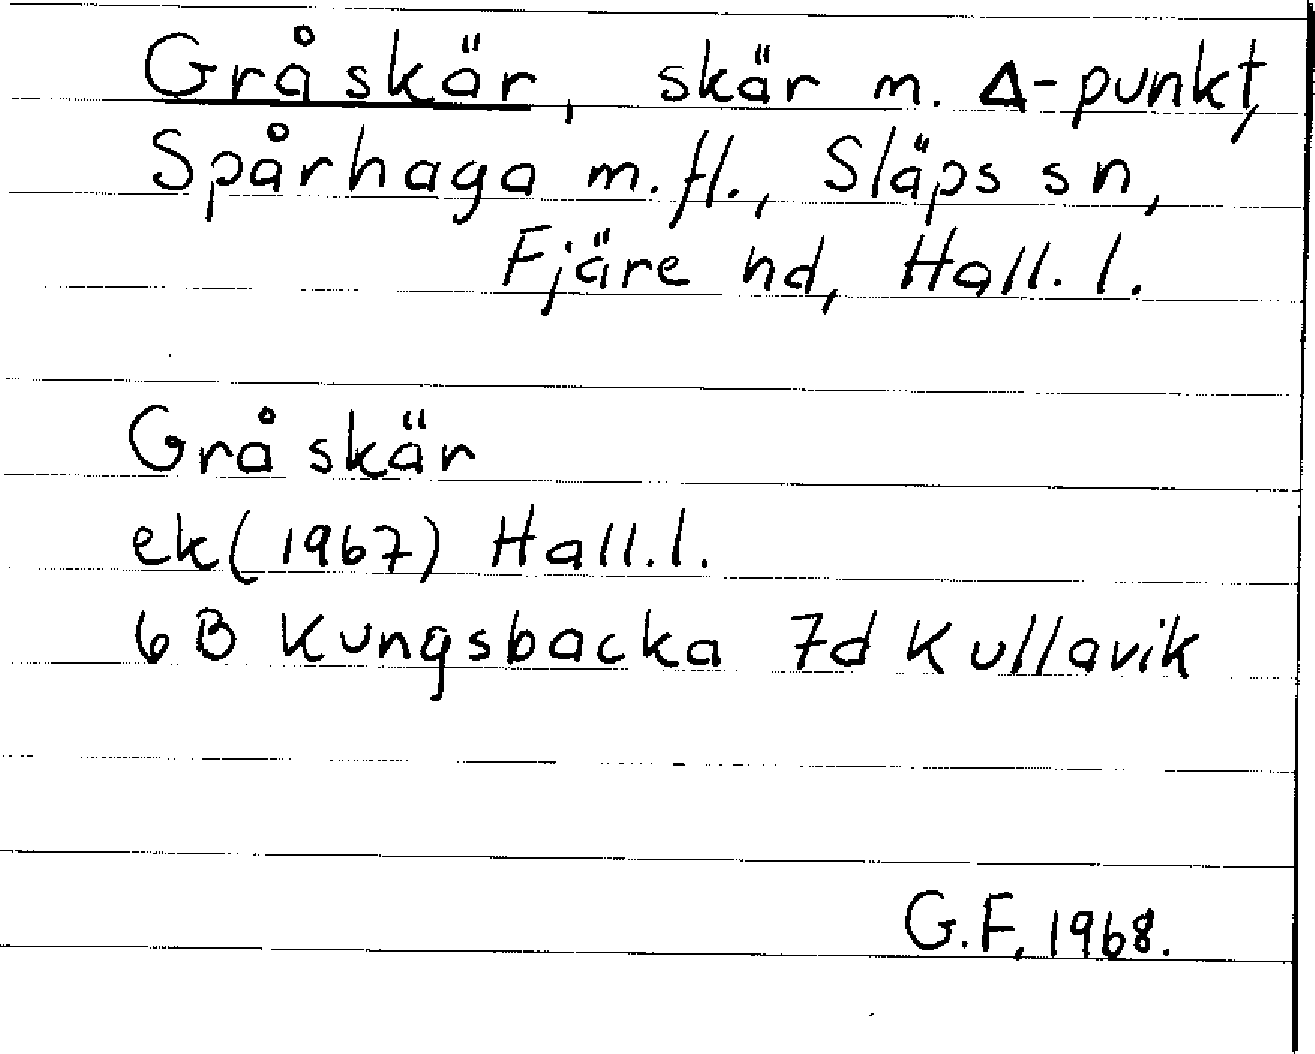 Gråskär, skär m. Δ-punkt,
Spårhaga m.fl., Släps sn,
Fjäre hd, Hall. l.
Grå skär
ek(1967) Hall.l.
6B Kungsbacka 7d Kullavik
G.F, 1968.